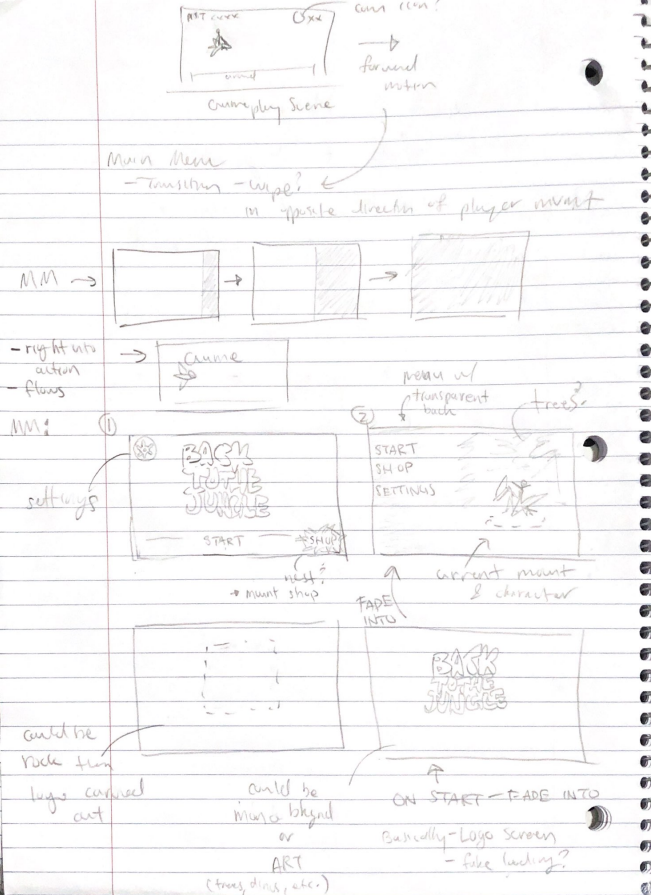 xx
forward
motion
Gameplay Scene
Main Menu
- Transition - wipe?
in opposite direction of player mvmt
MM
- right into
action
- flows
Game
MM:
1
settings
BACK
TO THE
JUNGLE
START
SHOP
nest?
mount shop
2
menu w/
transparent
back
trees?
START
SHOP
SETTINGS
current mount
& character
FADE
INTO
could be
rock then
logo carved
out
BACK
TO THE
JUNGLE
could be
bkgnd
or
ART
(trees, dinos, etc.)
ON START - FADE INTO
Basically - Logo Screen
- fake loading?